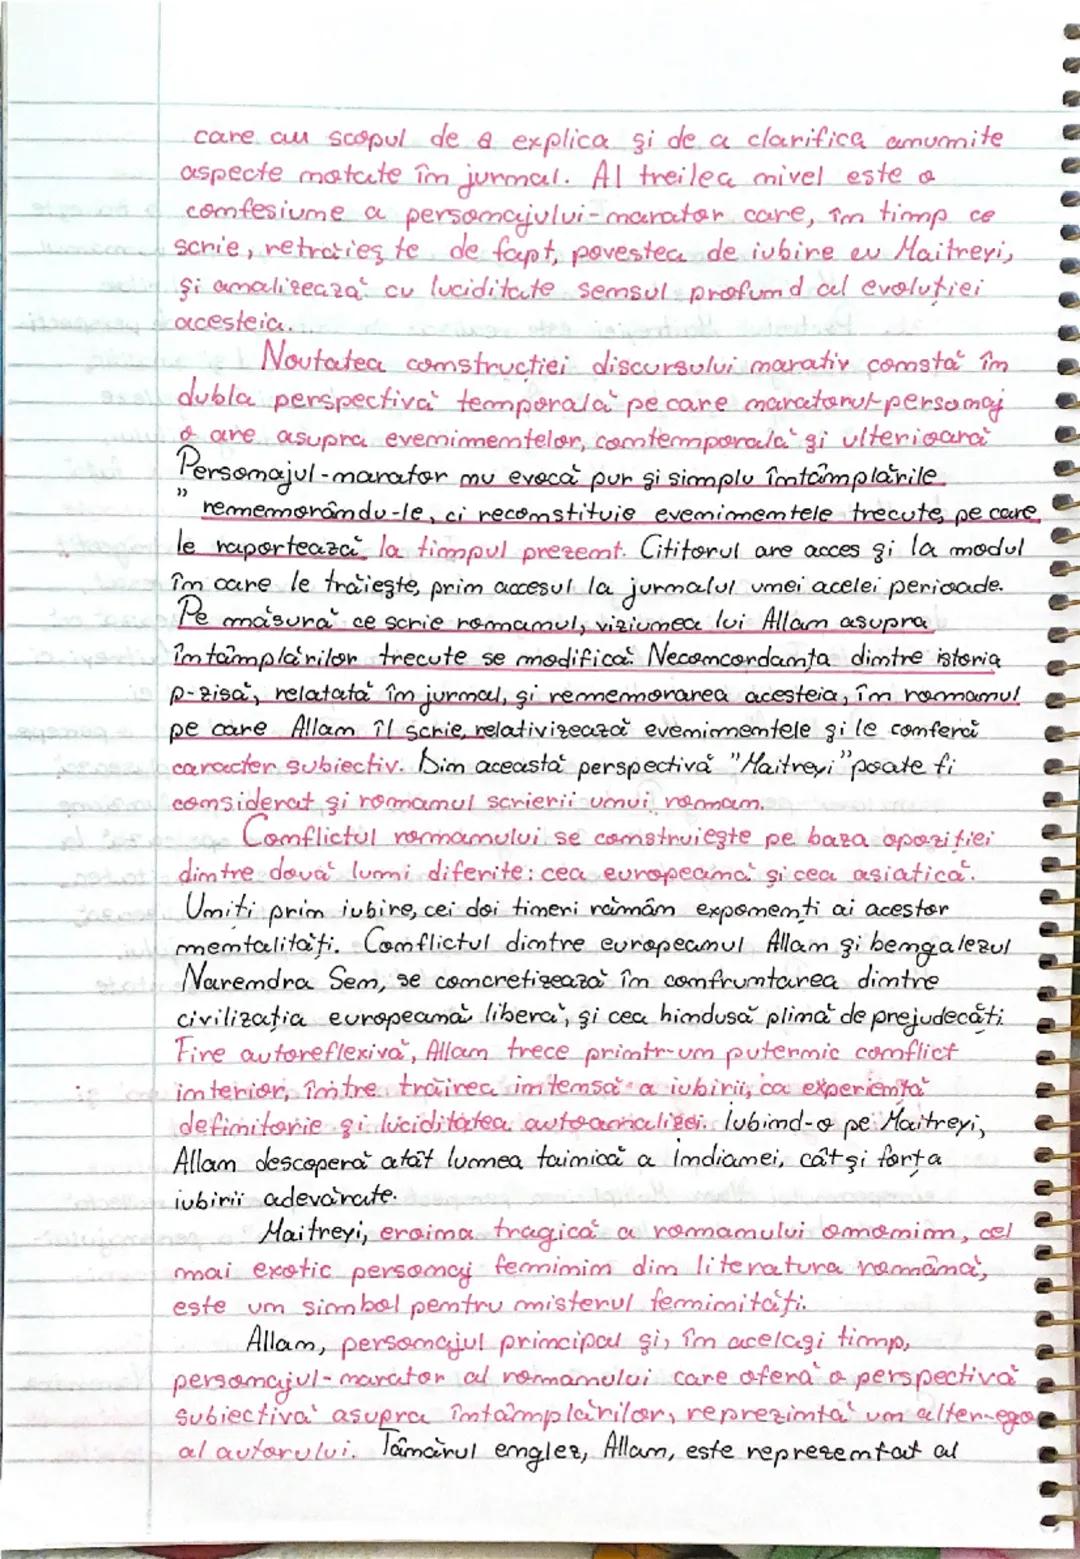 care au scopul de a explica și de a clarifica anumite
aspecte notate în jurnal. Al treilea nivel este o
confesiune a personajului-narator care, în timp ce
scrie, retrăiește de fapt, povestea de iubire cu Maitreyi,
și analizează cu luciditate sensul profund al evoluției
acesteia.
Noutatea construcției discursului narativ constă în
dubla perspectivă temporală pe care naratorul-personaj
o are asupra evenimentelor, contemporală și ulterioară
Personajul-narator nu evocă pur și simplu întâmplările
" rememorându-le, ci reconstituie evenimentele trecute, pe care
le raportează la timpul prezent. Cititorul are acces și la modul
în care le trăiește, prin accesul la jurnalul unei acelei perioade.
Pe măsură ce scrie romanul, viziunea lui Allan asupra
întâmplărilor trecute se modifică. Neconcordanța dintre istoria
p-zisă, relatată în jurnal, și rememorarea acesteia, în romanul
pe care Allan îl scrie, relativizează evenimentele și le conferă
caracter subiectiv. Din această perspectivă "Maitreyi" poate fi
considerat și romanul scrierii unui roman.
Conflictul romanului se construiește pe baza opoziției
dintre două lumi diferite: cea europeană și cea asiatică.
Uniți prin iubire, cei doi tineri rămân exponenți ai acestor
mentalități. Conflictul dintre europeanul Allan și bengalezul
Narendra Sen, se concretizează în confruntarea dintre
civilizația europeană liberă, și cea hindusă plină de prejudecăți
Fire autoreflexivă, Allan trece printr-un puternic conflict
interior, între trăirea intensă a iubirii, ca experiență
definitorie și luciditatea autoanalizei. Iubind-o pe Maitreyi,
Allan descoperă atât lumea tainică a Indianei, cât și forța
iubirii adevărate.
Maitreyi, eroina tragică a romanului omonim, cel
mai exotic personaj feminin din literatura română,
este un simbol pentru misterul feminității.
Allan, personajul principal și, în același timp,
personajul-narator al romanului care oferă o perspectivă
subiectivă asupra întâmplărilor, reprezintă un alter-ego
al autorului. Tânărul englez, Allan, este reprezentat al